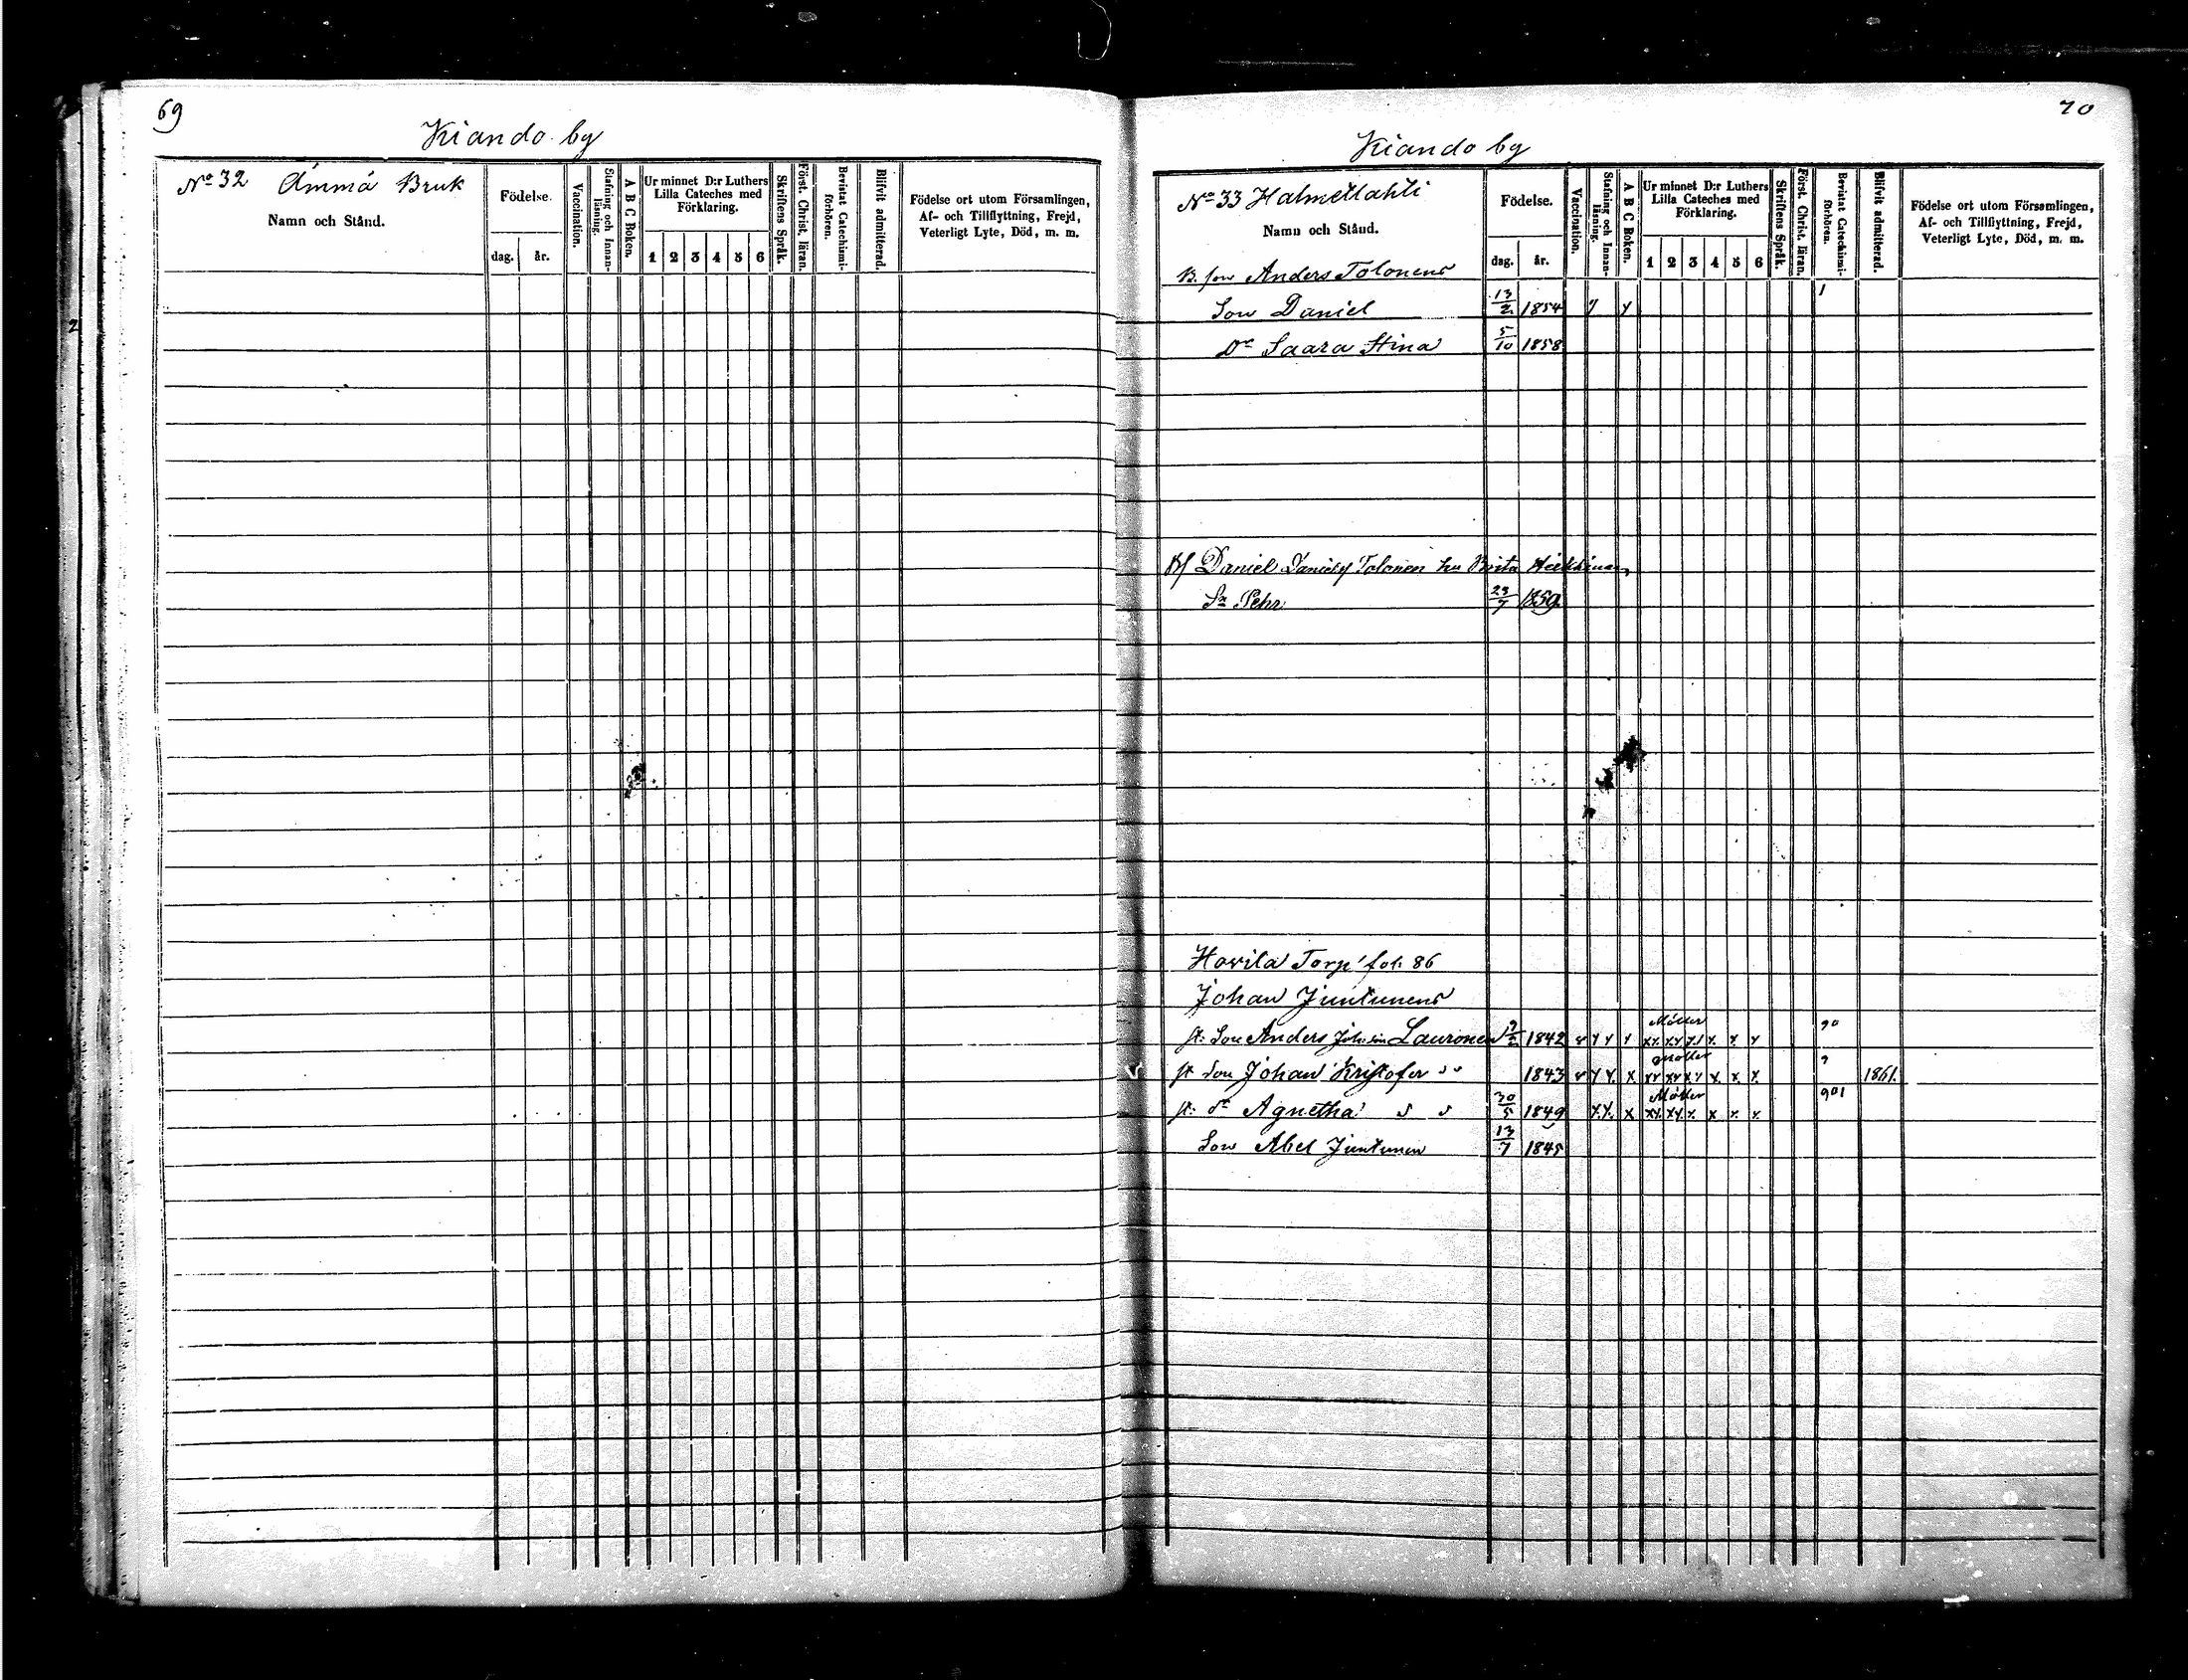 69
Kiando by
No 32 Ämmä Bruk
Namn och Stånd.
Födelse.
dag. år.
Vaccination.
Stafning och Innanläsning.
A B C Boken.
Ur minnet D:r Luthers Lilla Cateches med Förklaring.
1 2 3 4 5 6
Skriftens Språk.
Först. Christ. läran.
Bevistat Catechismiförhören.
Blifvit admitterad.
Födelse ort utom Församlingen,
Af- och Tillflyttning, Frejd,
Veterligt Lyte, Död, m. m.
70
Kiando by
No 33 Halmetlahti
Namn och Stånd.
Födelse.
dag. år.
Vaccination.
Stafning och Innanläsning.
A B C Boken.
Ur minnet D:r Luthers Lilla Cateches med Förklaring.
1 2 3 4 5 6
Skriftens Språk.
Först. Christ. läran.
Bevistat Catechismiförhören.
Blifvit admitterad.
Födelse ort utom Församlingen,
Af- och Tillflyttning, Frejd,
Veterligt Lyte, Död, m. m.
B. son Anders Tolonens
Son Daniel 13/2 1854 y y 1
Dr Saara Stina 5/10 1858
Daniel Daniels Tolonen hu Brita Heikkinen
Sn Pehr 23/7 1859
Hovila Torp fol. 86
Johan Juntunens
st. Son Anders Joh:sson Lauronen 1842 Möller 90
st Son Johan Kristofer 1843 Möller 9 1861.
st. dr Agnetha 30/5 1849 Möller 901
Son Abel Juntunen 13/7 1845